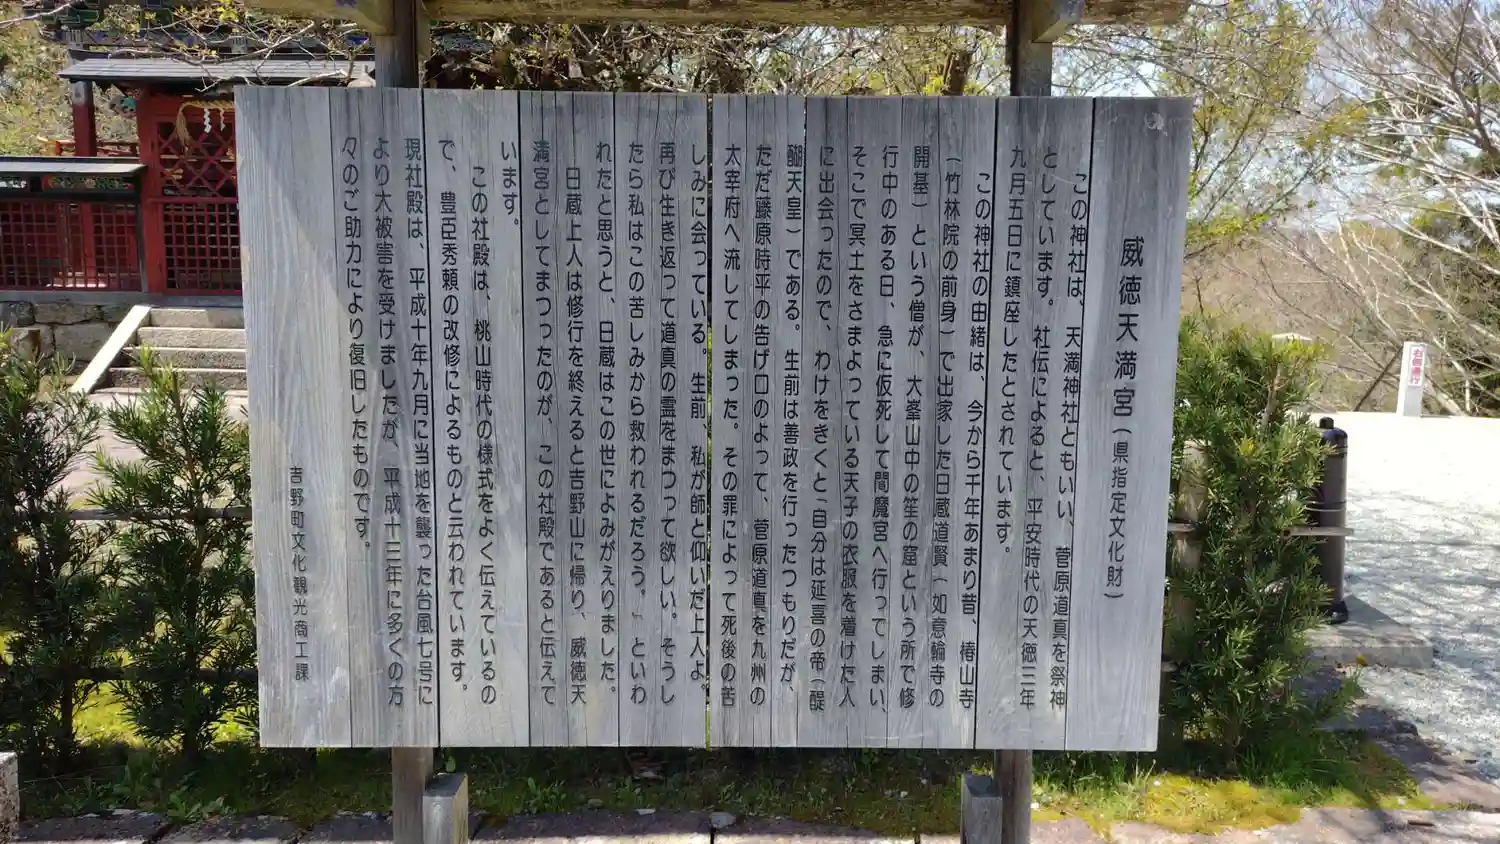 威徳天満宮（県指定文化財）
この神社は、天満神社ともいい、菅原道真を祭神
としています。社伝によると、平安時代の天徳三年
九月五日に鎮座したとされています。
この神社の由緒は、今から千年あまり昔、椿山寺
（竹林院の前身）で出家した日蔵道賢（如意輪寺の
開基）という僧が、大峯山中の笙の窟という所で修
行中のある日、急に仮死して閻魔宮へ行ってしまい、
そこで冥土をさまよっている天子の衣服を着けた人
に出会ったので、わけをきくと「自分は延喜の帝（醍
醐天皇）である。生前は善政を行ったつもりだが、
ただ藤原時平の告げ口のよって、菅原道真を九州の
太宰府へ流してしまった。その罪によって死後の苦
しみに会っている。生前、私が師と仰いだ上人よ。
再び生き返って道真の霊をまつって欲しい。そうし
たら私はこの苦しみから救われるだろう。」といわ
れたと思うと、日蔵はこの世によみがえりました。
日蔵上人は修行を終えると吉野山に帰り、威徳天
満宮としてまつったのが、この社殿であると伝えて
います。
この社殿は、桃山時代の様式をよく伝えているの
で、豊臣秀頼の改修によるものと云われています。
現社殿は、平成十年九月に当地を襲った台風七号に
より大被害を受けましたが、平成十三年に多くの方
々のご助力により復旧したものです。
吉野町文化観光商工課